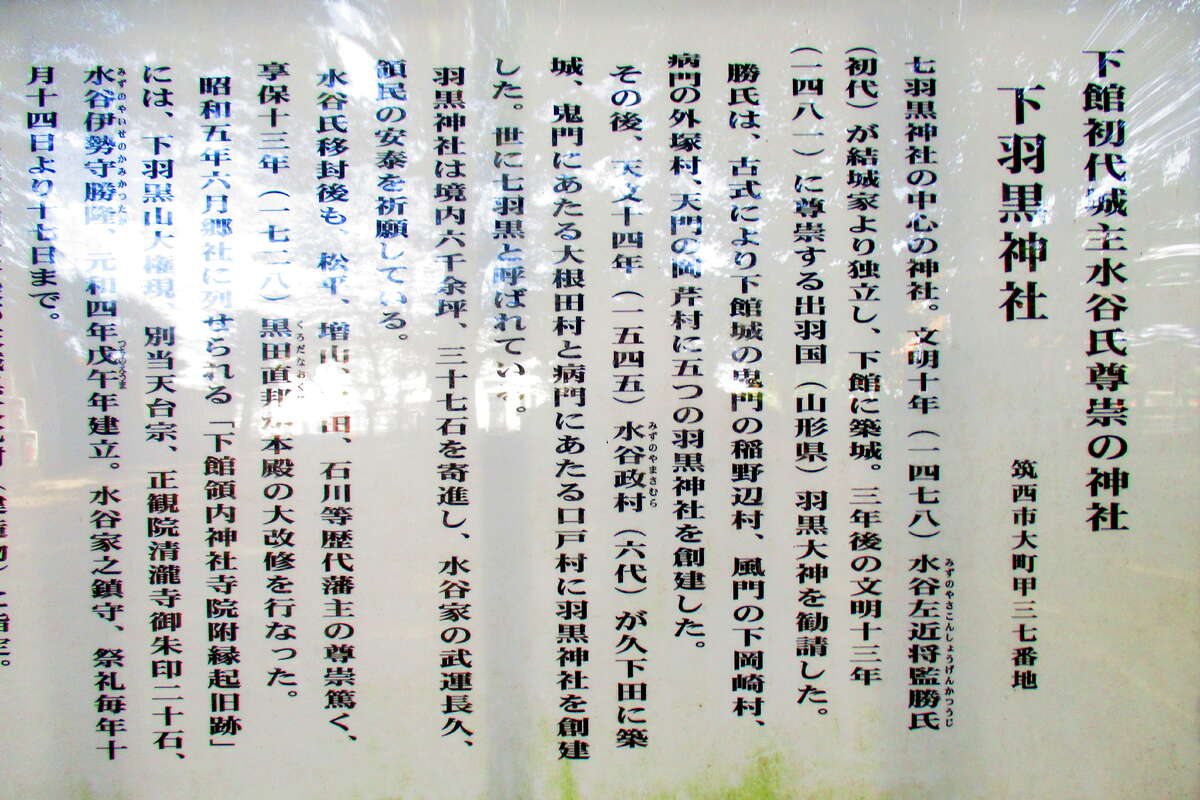 下館初代城主水谷氏尊崇の神社
下羽黒神社
筑西市大町甲三七番地
七羽黒神社の中心の神社。文明十年（一四七八）水谷左近将監勝氏
みずのやさこんしょうげんかつうじ
（初代）が結城家より独立し、下館に築城。三年後の文明十三年
（一四八一）に尊崇する出羽国（山形県）羽黒大神を勧請した。
勝氏は、古式により下館城の鬼門の稲野辺村、風門の下岡崎村、
病門の外塚村、天門の岡芹村に五つの羽黒神社を創建した。
その後、天文十四年（一五四五）水谷政村（六代）が久下田に築
みずのやまさむら
城、鬼門にあたる大根田村と病門にあたる口戸村に羽黒神社を創建
した。世に七羽黒と呼ばれている。
羽黒神社は境内六千余坪、三十七石を寄進し、水谷家の武運長久、
領民の安泰を祈願している。
水谷氏移封後も、松平、増山、田、石川等歴代藩主の尊崇篤く、
享保十三年（一七二八）黒田直邦が本殿の大改修を行なった。
くろだなおく
昭和五年六月郷社に列せられる「下館領内神社寺院附縁起旧跡」
には、下羽黒山大権現、別当天台宗、正観院清瀧寺御朱印二十石、
水谷伊勢守勝隆、元和四年戊午年建立。水谷家之鎮守、祭礼毎年十
みずのやいせのかみかつたか
つちのえうま
月十四日より十七日まで。